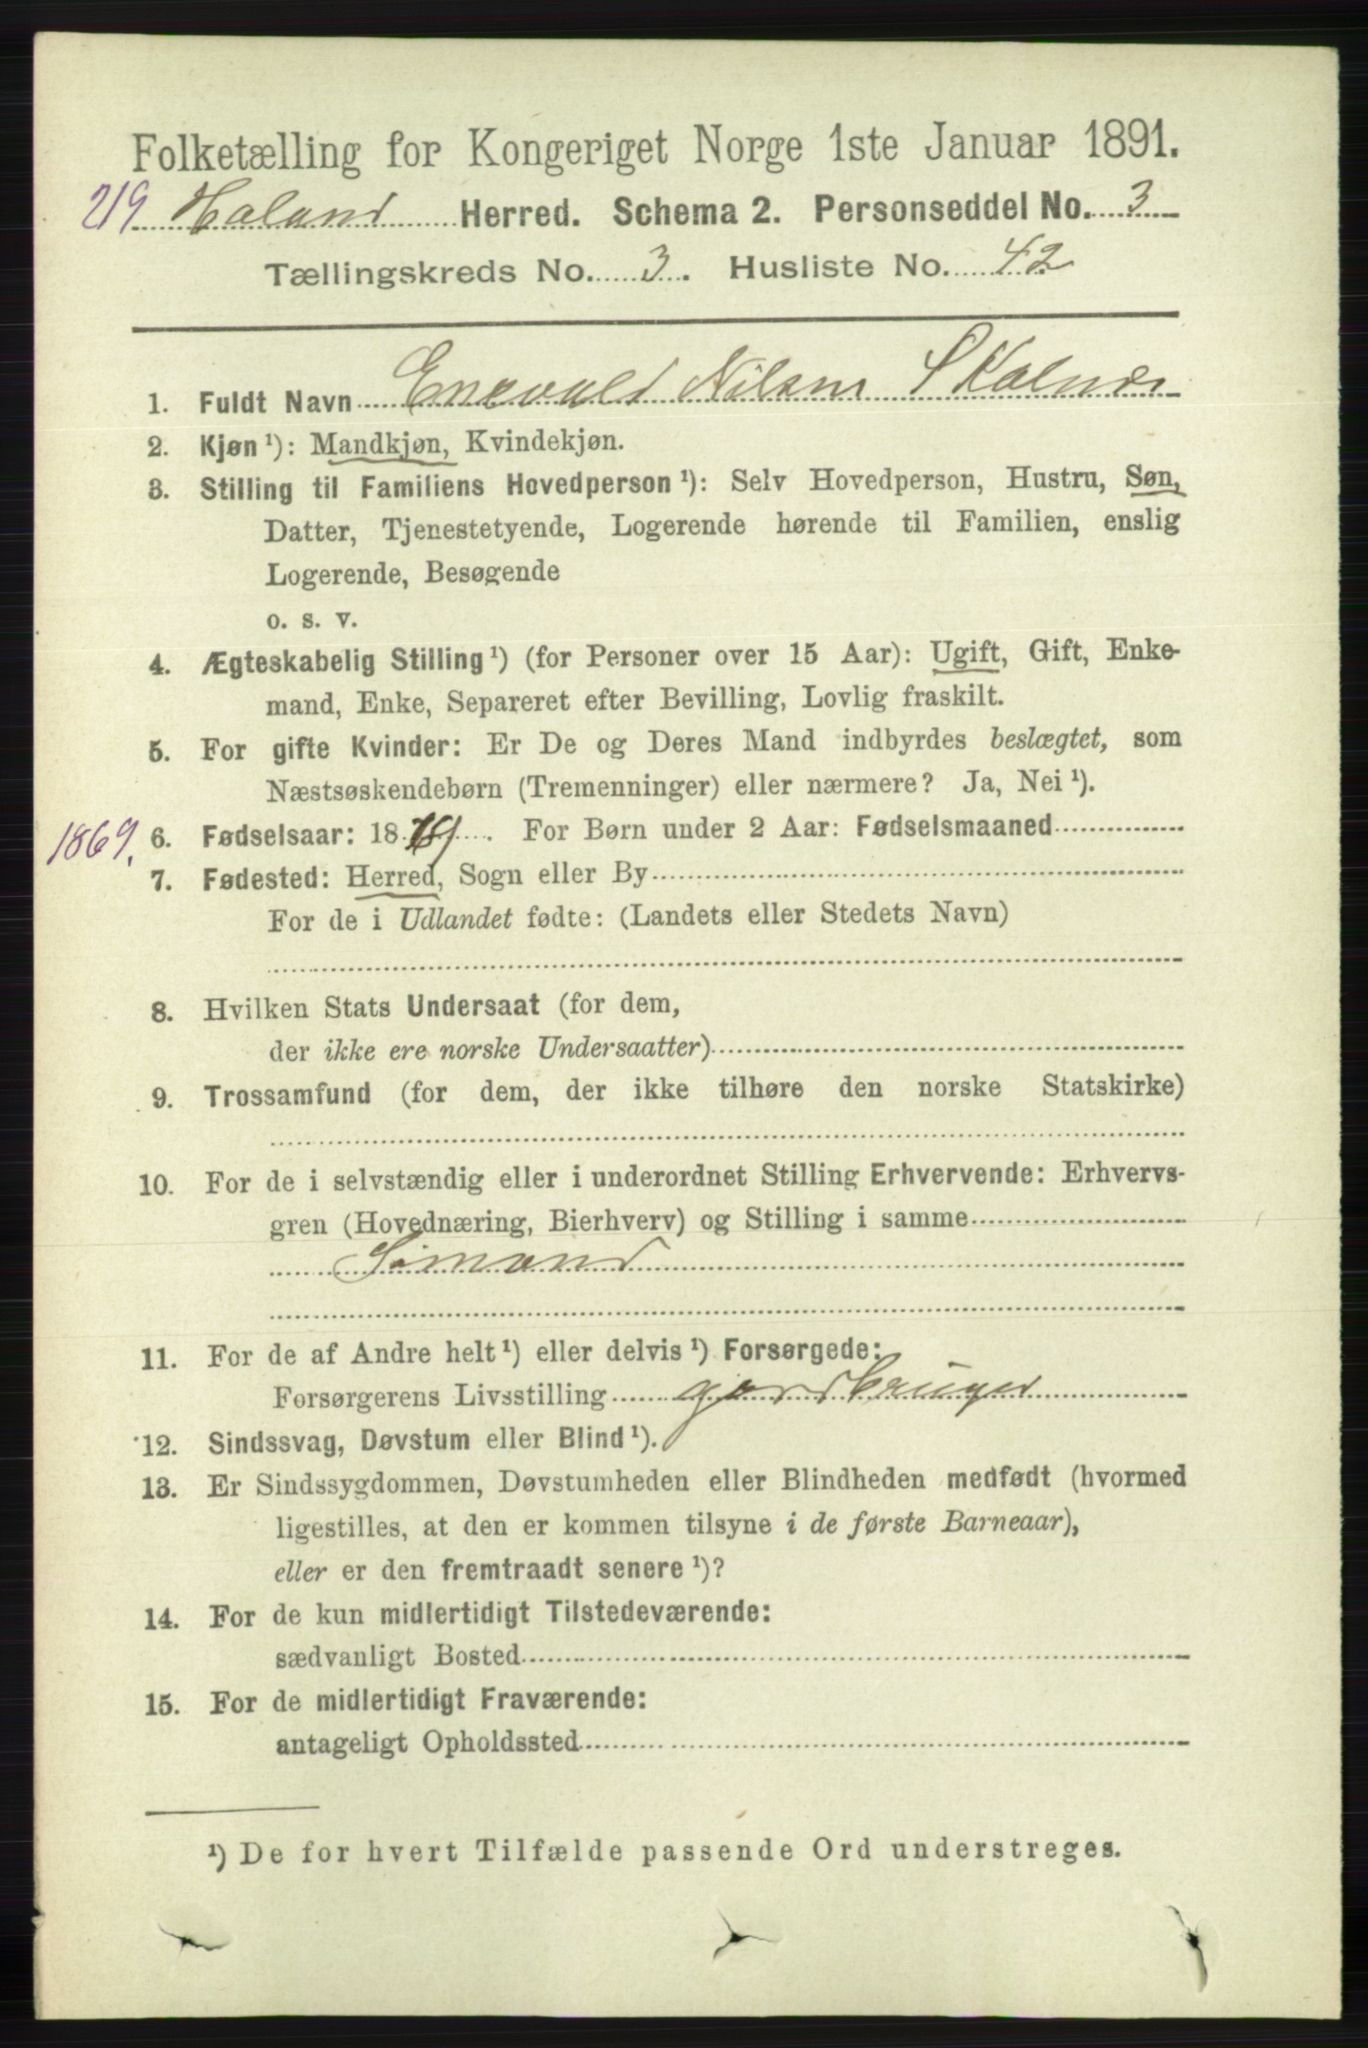 Folketælling for Kongeriget Norge 1ste Januar 1891.
219 Haland Herred. Schema 2. Personseddel No. 3
Tællingskreds No. 3. Husliste No. 42
1. Fuldt Navn Enevald Nilsen Skalnes
2. Kjøn ¹): Mandkjøn, Kvindekjøn.
3. Stilling til Familiens Hovedperson ¹): Selv Hovedperson, Hustru, Søn,
Datter, Tjenestetyende, Logerende hørende til Familien, enslig
Logerende, Besøgende
o. s. v.
4. Ægteskabelig Stilling ¹) (for Personer over 15 Aar): Ugift, Gift, Enke-
mand, Enke, Separeret efter Bevilling, Lovlig fraskilt.
5. For gifte Kvinder: Er De og Deres Mand indbyrdes beslægtet, som
Næstsøskendebørn (Tremenninger) eller nærmere? Ja, Nei ¹).
1869. 6. Fødselsaar: 1869. For Børn under 2 Aar: Fødselsmaaned
7. Fødested: Herred, Sogn eller By
For de i Udlandet fødte: (Landets eller Stedets Navn)
8. Hvilken Stats Undersaat (for dem,
der ikke ere norske Undersaatter)
9. Trossamfund (for dem, der ikke tilhøre den norske Statskirke)
10. For de i selvstændig eller i underordnet Stilling Erhvervende: Erhvervs-
gren (Hovednæring, Bierhverv) og Stilling i samme
Sømand
11. For de af Andre helt ¹) eller delvis ¹) Forsørgede:
Forsørgerens Livsstilling gardbruger
12. Sindssvag, Døvstum eller Blind ¹).
13. Er Sindssygdommen, Døvstumheden eller Blindheden medfødt (hvormed
ligestilles, at den er kommen tilsyne i de første Barneaar),
eller er den fremtraadt senere ¹)?
14. For de kun midlertidigt Tilstedeværende:
sædvanligt Bosted
15. For de midlertidigt Fraværende:
antageligt Opholdssted
¹) De for hvert Tilfælde passende Ord understreges.